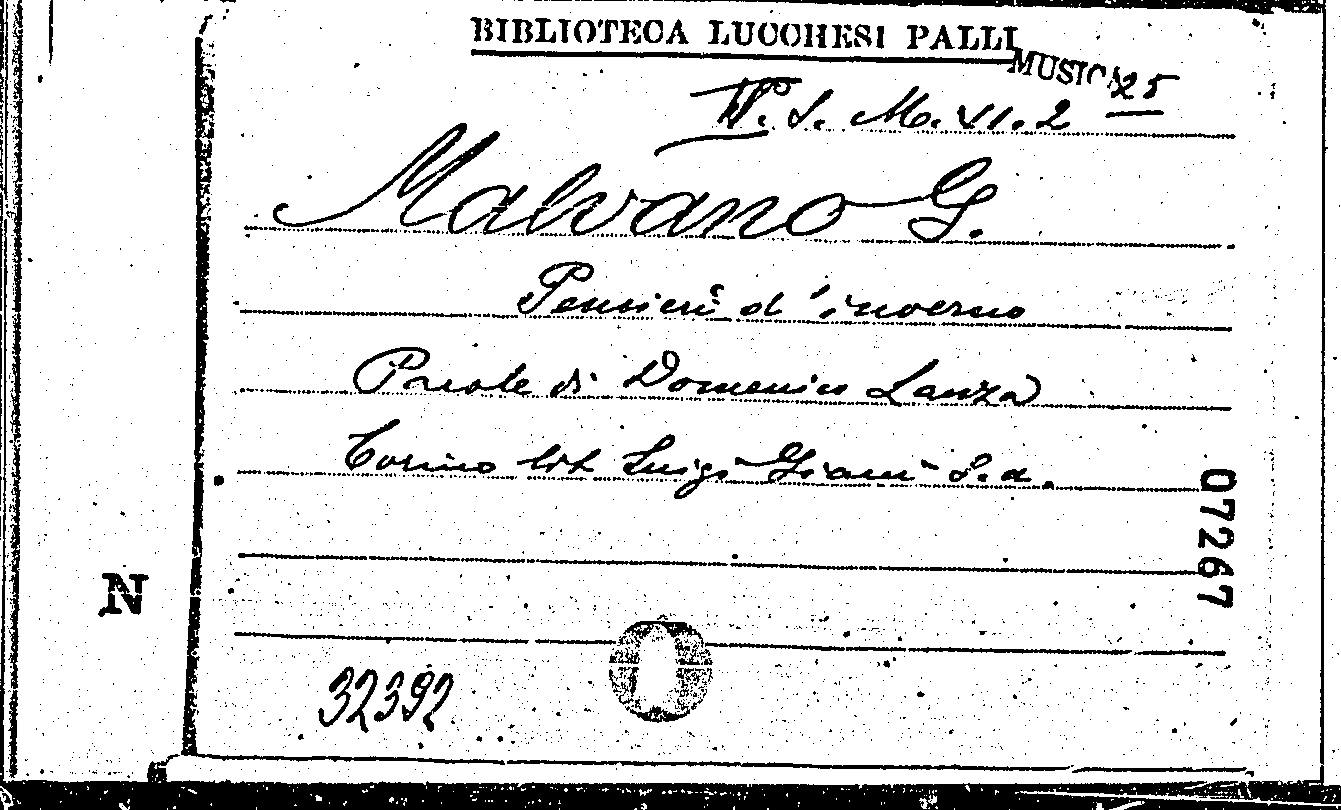 BIBLIOTECA LUCCHESI PALLI
MUSICA 25
S. Mo. XI. 2
Malvano G.
Pensieri d'inverno
Parole di Domenico Lanza
Torino lit Luigi Giani S.d.
07267
N
32392